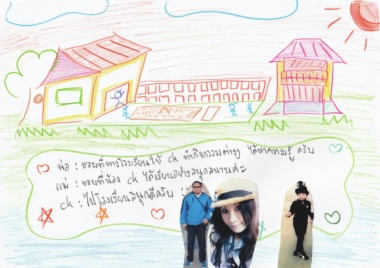 พ่อ : ชอบที่ทางโรงเรียนให้ ck ทำกิจกรรมต่างๆ ได้หาความรู้ ครับ
แม่ : ชอบที่น้อง ck ได้เรียนอย่างสนุกสนานค่ะ
ck : ไปโรงเรียนสนุกดีครับ